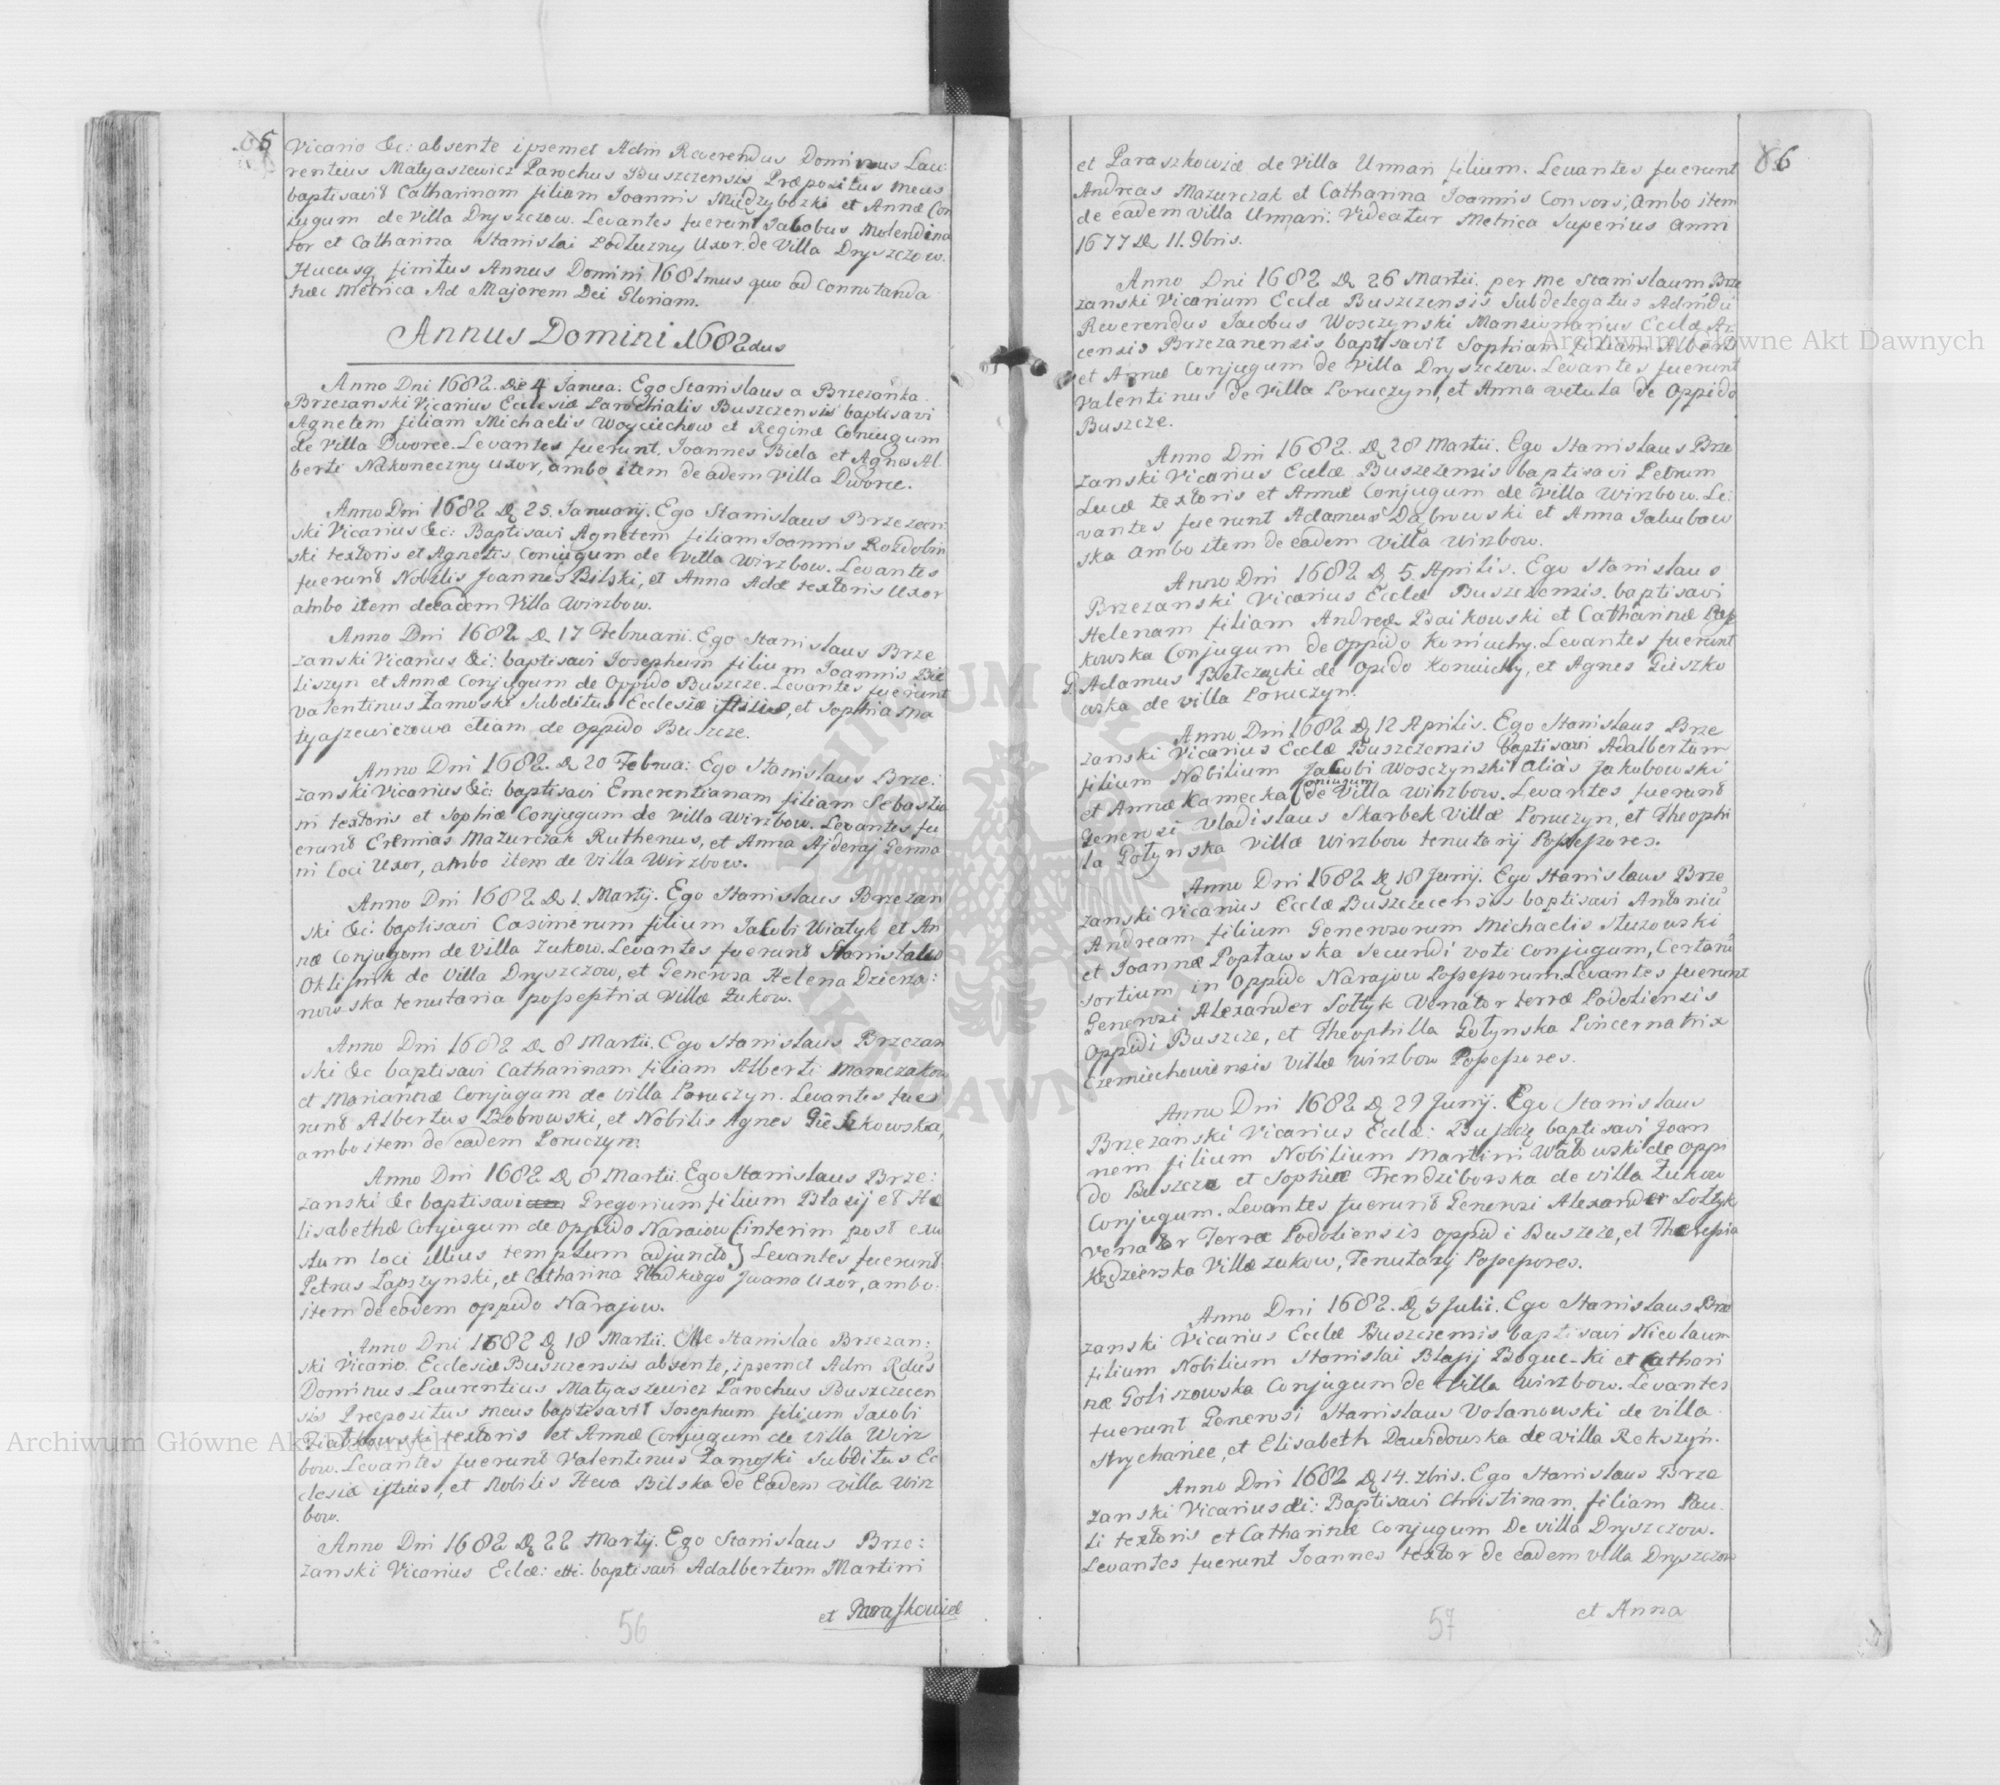 5
Vicario &c: absente ipsemet Adm Reverendus Dominus Lau
rentius Matyaszewicz Parochus Buszczensis Præpositus meus
baptisavit Catharinam filiam Joannis Miedzybozki et Annæ Con
jugum de Villa Dryszczow. Levantes fuerunt Jacobus Molendina
tor et Catharina Stanislai Podluzny Uxor de Villa Dryszczow.
Hucusq finitus Annus Domini 1681mus quo ad connotanda
hæc Metrica Ad Majorem Dei Gloriam.
Annus Domini 1682dus
Anno Dni 1682. Die 4 Janua: Ego Stanislaus a Brzezanka
Brzezanski Vicarius Ecclesiæ Parochialis Buszczensis baptisavi
Agnetem filiam Michaelis Woyciechow et Reginæ Conjugum
de Villa Dworce. Levantes fuerunt. Joannes Biela et Agnes Al
berti Nakoneczny uxor, ambo item de eadem Villa Dworce.
Anno Dni 1682 D 25. Januarij. Ego Stanislaus Brzezan
ski Vicarius &c: Baptisavi Agnetem filiam Joannis Rozdolin
ski textoris et Agnetis, Conjugum de Villa Wirzbow. Levantes
fuerunt Nobilis Joannes Bilski, et Anna Adæ textoris Uxor
ambo item de eadem Villa Wirzbow.
Anno Dni 1682 D 17 Februarii. Ego Stanislaus Brze
zanski Vicarius &c: baptisavi Josephum filium Joannis Bie
liszyn et Annæ Conjugum de Oppido Buszcze. Levantes fuerunt
Valentinus Zamoski Subditus Ecclesiæ istius, et Sophia Ma
tyaszewiczowa etiam de Oppido Buszcze.
Anno Dni 1682. D 20 Februa: Ego Stanislaus Brze:
zanski Vicarius &c: baptisavi Emerentianam filiam Sebastia
ni textoris et Sophiæ Conjugum de Villa Wirzbow. Levantes fu
erunt Eremias Mazurczak Ruthenus, et Anna Ajderaj Germa
ni Loci Uxor, ambo item de Villa Wirzbow.
Anno Dni 1682 D 1. Martij. Ego Stanislaus Brzezan
ski &c: baptisavi Casimirum filium Jacobi Wiatyk et An
næ Conjugum de Villa Zukow. Levantes fuerunt Stanislaus
Oklisnik de Villa Dryszczow, et Generosa Helena Dzierza:
nowska tenutaria possestrix Villæ Zukow.
Anno Dni 1682 D 8 Martii. Ego Stanislaus Brzezan
ski &c baptisavi Catharinam filiam Alberti Mamczakow
et Mariannæ Conjugum de Villa Poruczyn. Levantes fue
runt Albertus Bobrowski, et Nobilis Agnes Gieszkowska,
ambo item de eadem Poruczyn.
Anno Dni 1682 D 8 Martii. Ego Stanislaus Brze:
zanski &c baptisavi Gregorium filium Blasij et He
lisabethæ Conjugum de Oppido Naraiow (interim post exu
stum loci illius templum adjuncto) Levantes fuerunt.
Petrus Lapszynski, et Catharina Gladkiego Iwana Uxor, ambo
item de eodem oppido Narajow.
Anno Dni 1682 D 18 Martii. Me Stanislao Brzezan:
ski Vicario. Ecclesiæ Buszczensis absente, ipsemet Adm Rdus
Dominus Laurentius Matyaszewicz Parochus Buszczecen
sis Præpositus meus baptisavit Josephum filium Jacobi
Piatkowski textoris et Annæ Conjugum de Villa Wirz
bow. Levantes fuerunt Valentinus Zamoski Subditus Ec
clesiæ istius, et Nobilis Hewa Bilska de Eadem villa Wirz
bow.
Anno Dni 1682 D 22 Martij. Ego Stanislaus Brze:
zanski Vicarius Eclæ: etti. baptisavi Adalbertum Martini
et Paraskowiæ
56
86
et Paraszkowiæ de Villa Urman filium. Levantes fuerunt
Andreas Mazurczak et Catharina Joannis Consors; ambo item
de eadem Villa Urman: Videatur Metrica Superius Anni
1677 D 11. 9bris.
Anno Dni 1682 D 26 Martii. per me Stanislaum Brze
zanski Vicarium Ecclæ Buszczensis Subdelegatus Admdu
Reverendus Jacobus Woszczynski Mansionarius Eccelæ Ar
censis Brzezanensis baptisavit Sophiam filiam Alberti
et Annæ Conjugum de Villa Dryszczow. Levantes fuerunt
Valentinus de Villa Poruczyn, et Anna vetula de Oppido
Buszcze.
Anno Dni 1682. D 28 Martii. Ego Stanislaus Brze
zanski Vicarius Ecclæ Buszczensis baptisavi Petrum
Lucæ textoris et Annæ Conjugum de Villa Wirzbow. Le:
vantes fuerunt Adamus Dąbrowski et Anna Jakubow
ska ambo item de eadem Villa Wirzbow.
Anno Dni 1682 D 5. Aprilis. Ego Stanislaus
Brzezanski Vicarius Ecclæ Buszczensis. baptisavi
Helenam filiam Andreæ Baikowski et Catharinæ Baj
kowska Conjugum de oppido Koniuchy. Levantes fuerunt
G. Adamus Belczącki de Opido Koniuchy, et Agnes Gieszko
wska de villa Poruczyn.
Anno Dni 1682 D 12 Aprilis. Ego Stanislaus Brze
zanski Vicarius Ecclæ Buszczensis baptisavi Adalbertum
filium Nobilium Jacobi Woszczynski alias Jakubowski
et Annæ Kamecka Conjugum de Villa Wirzbow. Levantes fuerunt
Generosi Vladislaus Skarbek Villæ Poruczyn, et Theophi
la Golynska Villæ Wirzbow tenutarij Possessores.
Anno Dni 1682 D 18 Junij. Ego Stanislaus Brze
zanski Vicarius Ecclæ Buszczecensis baptisavi Antoniu
Andream filium Generosorum Michaelis Sluzowski
et Joannæ Poplawska secundi voti Conjugum, Certaru
sortium in Oppido Narajow Possessorum. Levantes fuerunt
Generosi Alexander Soltyk Venator terræ Podoliensis
Oppidi Buszcze, et Theophilla Golynska Pincernatrix
Czerniechowiensis Villæ Wirzbow Possessores.
Anno Dni 1682 D 29 Junij. Ego Stanislaus
Brzezanski Vicarius Ecclæ: Buszczę baptisavi Joan
nem filium Nobilium Martini Walowski de Oppi
do Buszcza et Sophiæ Trendziborska de villa Zukow
Conjugum. Levantes fuerunt Generosi Alexander Soltyk
Venator Terræ Podoliensis Oppidi Buszcze, et Theresia
Kędzierska Villæ Zukow, Tenutarij Possessores.
Anno Dni 1682. D 5 Julii. Ego Stanislaus Brze
zanski Vicarius Ecclæ Buszczensis baptisavi Nicolaum
filium Nobilium Stanislai Blasij Boguc-ki et Cathari
næ Goliszowska Conjugum de Villa Wirzbow. Levantes
fuerunt Generosi Stanislaus Wolanowski de villa
Strychance, et Elisabeth Dawidowska de villa Rekszyn.
Anno Dni 1682 D 14. 7bris. Ego Stanislaus Brze
zanski Vicarius &c: Baptisavi Christinam, filiam Pau
li textoris et Catharinæ Conjugum De villa Dryszczow.
Levantes fuerunt Joannes textor de eadem villa Dryszczow
et Anna
57
Archiwum Główne Akt Dawnych
Archiwum Główne Akt Dawnych